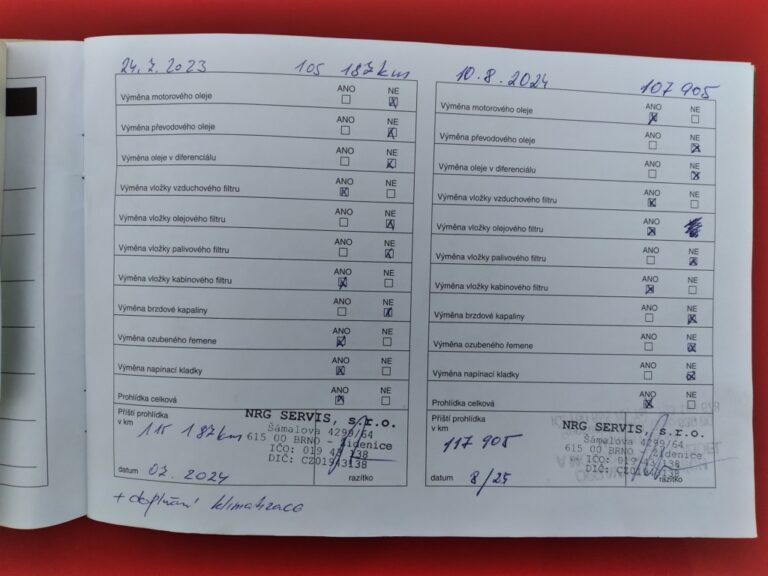 24. 7. 2023 105 187km
ANO NE
Výměna motorového oleje
ANO NE
Výměna převodového oleje
ANO NE
Výměna oleje v diferenciálu
ANO NE
Výměna vložky vzduchového filtru
ANO NE
Výměna vložky olejového filtru
ANO NE
Výměna vložky palivového filtru
ANO NE
Výměna vložky kabinového filtru
ANO NE
Výměna brzdové kapaliny
ANO NE
Výměna ozubeného řemene
ANO NE
Výměna napínací kladky
ANO NE
Prohlídka celková
Příští prohlídka
v km
115 187km
NRG SERVIS, s.r.o.
Šámalova 4299/64
615 00 BRNO - Židenice
IČO: 019 43 138
DIČ: CZ01943138
datum 07. 2024 razítko
+ doplnění klimatizace
10. 8. 2024 107 905
ANO NE
Výměna motorového oleje
ANO NE
Výměna převodového oleje
ANO NE
Výměna oleje v diferenciálu
ANO NE
Výměna vložky vzduchového filtru
ANO
Výměna vložky olejového filtru
ANO NE
Výměna vložky palivového filtru
ANO NE
Výměna vložky kabinového filtru
ANO NE
Výměna brzdové kapaliny
ANO NE
Výměna ozubeného řemene
ANO NE
Výměna napínací kladky
ANO NE
Prohlídka celková
Příští prohlídka
v km
117 905
NRG SERVIS, s.r.o.
Šámalova 4299/64
615 00 BRNO - Židenice
IČO: 019 43 138
DIČ: CZ01943138
datum 8/25 razítko